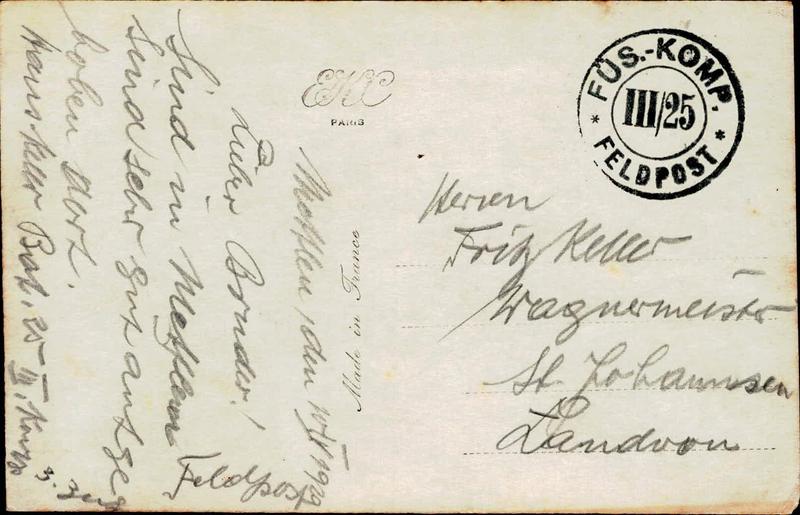 FÜS.-KOMP.
III/25
* FELDPOST *
PARIS
Made in France
Mettlen, den
Lieber Bruder!
Sind in Mettlen
Sind sehr gut aufge
hoben dort.
Hans Keller Bat. 25 III, Komp
3. Zug
Feldpost
Herren
Fritz Keller
Wagnermeister
St. Johannsen
Landron